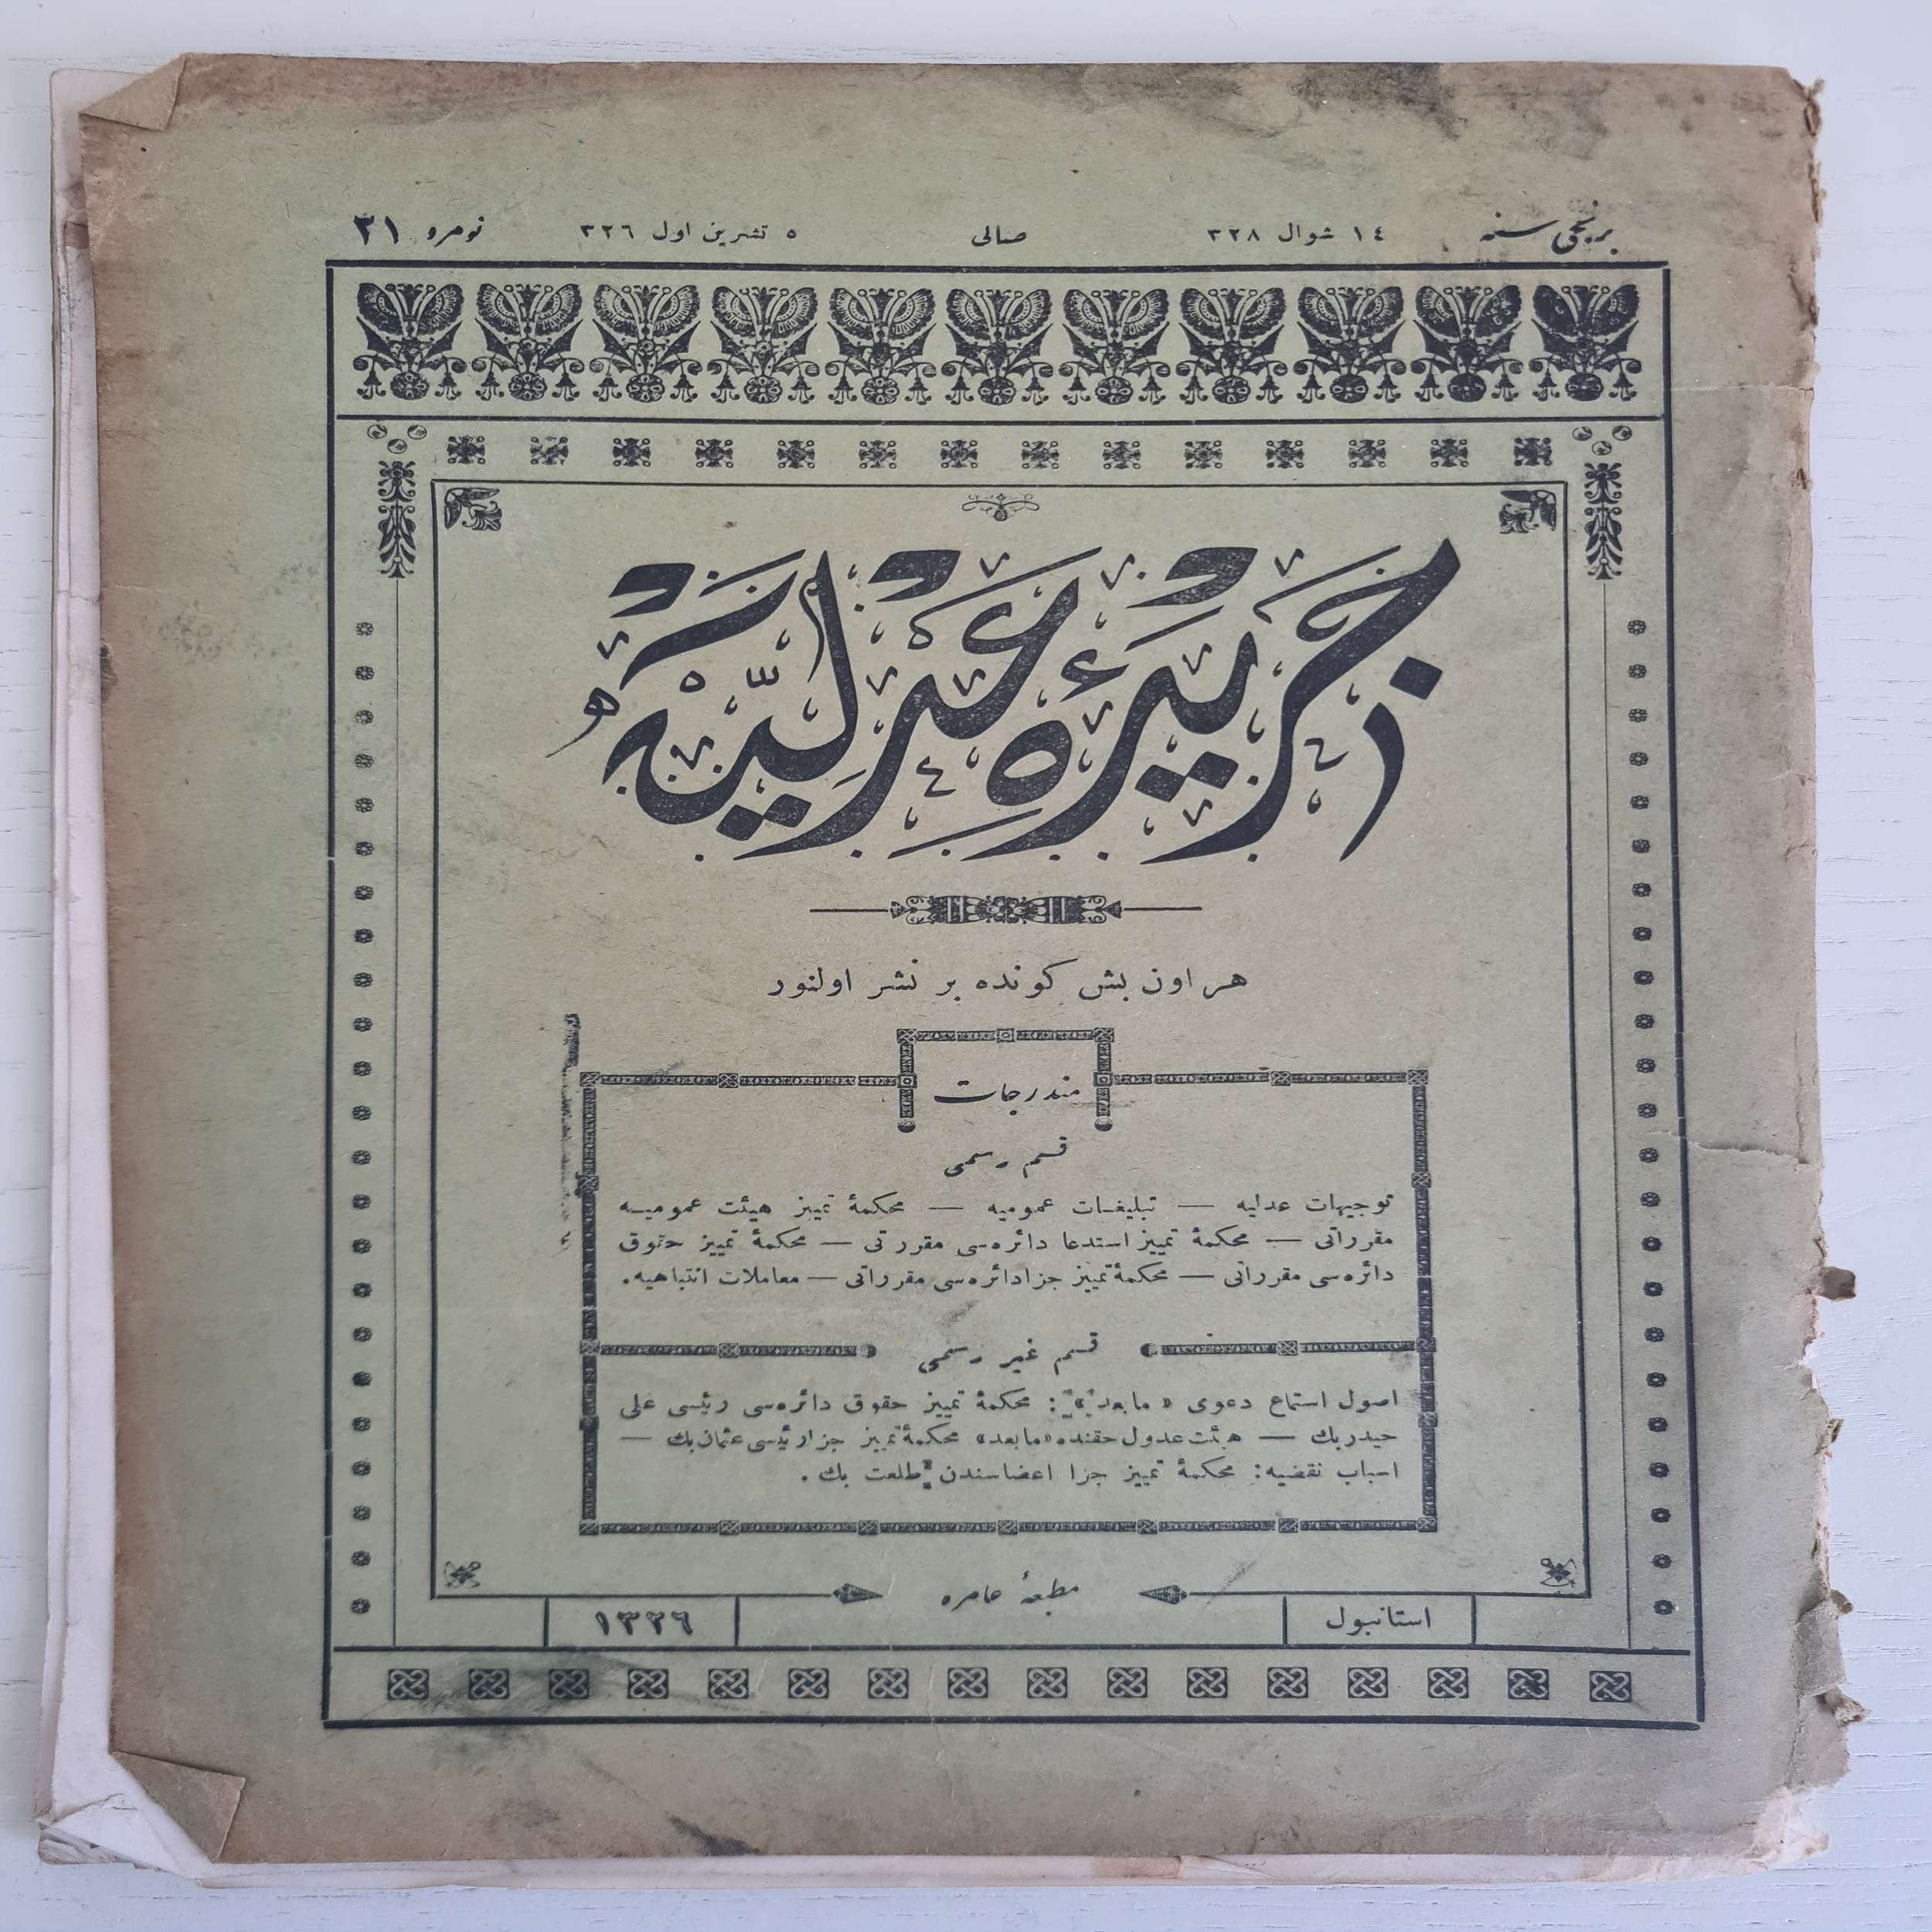 برنجی سنه ١٤ شوال ٣٢٨ صالی ٥ تشرین اول ٣٢٦ نومرو ٣١
جریدهٔ عدلیه
هر اون بش كونده بر نشر اولنور
مندرجات
قسم رسمی
توجیهات عدلیه — تبلیغات عمومیه — محكمهٔ تمییز هیئت عمومیه
مقرراتی — محكمهٔ تمییز استدعا دائره‌سی مقرراتی — محكمهٔ تمییز حقوق
دائره‌سی مقرراتی — محكمهٔ تمییز جزا دائره‌سی مقرراتی — معاملات انتباهیه.
قسم غیر رسمی
اصول استماع دعوی «مابعد»: محكمهٔ تمییز حقوق دائره‌سی رئیسی علی
حیدر بك — هیئت عدول حقنده «مابعد» محكمهٔ تمییز جزا رئیسی عثمان بك —
اسباب نقضیه: محكمهٔ تمییز جزا اعضاسندن طلعت بك.
مطبعهٔ عامره
استانبول ١٣٢٦